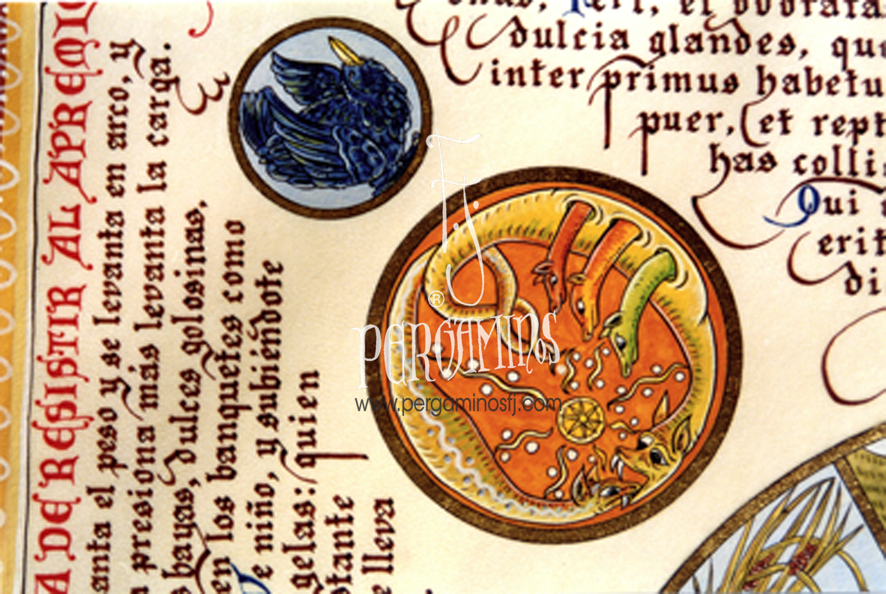 A DE RESISTIR AL APREMIO
anta el peso y se levanta en arco, y
presiona más levanta la carga.
s bayas, dulces golosinas,
en los banquetes como
e niño, y subiendote
gelas: quien
stante
e lleva
dulcia glandes, qu
inter primus habetu
puer, et rept
has colli
Qui
erit
di
FJ
®
PERGAMINOS
www.pergaminosfj.com